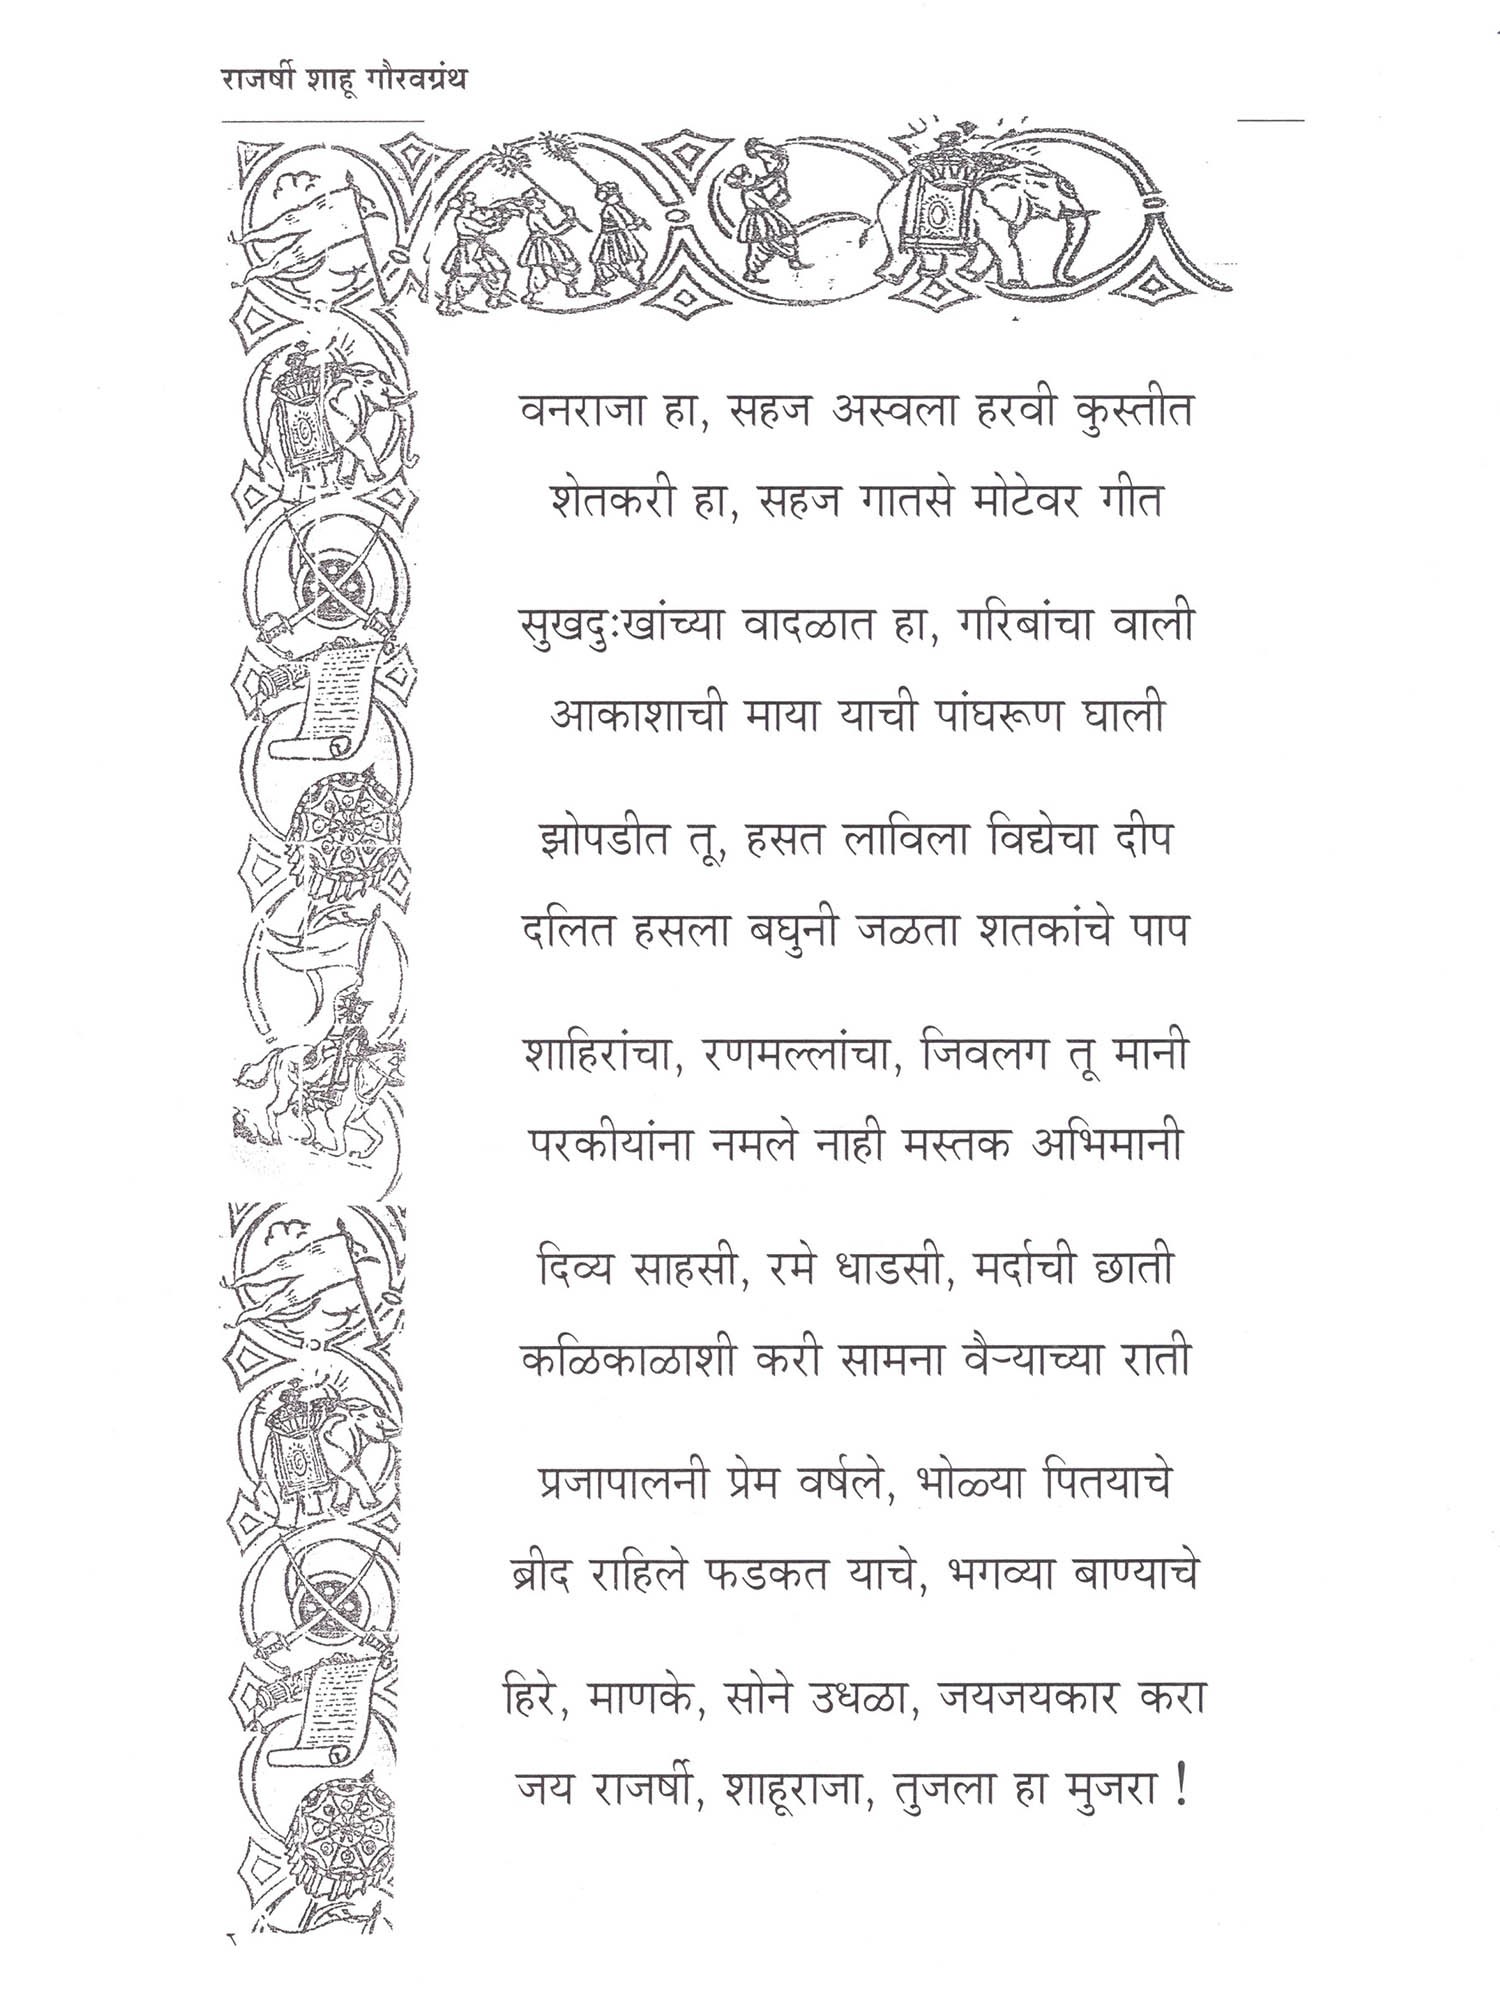 राजर्षी शाहू गौरवग्रंथ
वनराजा हा, सहज अस्वला हरवी कुस्तीत
शेतकरी हा, सहज गातसे मोटेवर गीत
सुखदुःखांच्या वादळात हा, गरिबांचा वाली
आकाशाची माया याची पांघरूण घाली
झोपडीत तू, हसत लाविला विद्येचा दीप
दलित हसला बघुनी जळता शतकांचे पाप
शाहिरांचा, रणमल्लांचा, जिवलग तू मानी
परकीयांना नमले नाही मस्तक अभिमानी
दिव्य साहसी, रमे धाडसी, मर्दाची छाती
कळिकाळाशी करी सामना वैऱ्याच्या राती
प्रजापालनी प्रेम वर्षले, भोळ्या पितयाचे
ब्रीद राहिले फडकत याचे, भगव्या बाण्याचे
हिरे, माणके, सोने उधळा, जयजयकार करा
जय राजर्षी, शाहूराजा, तुजला हा मुजरा !